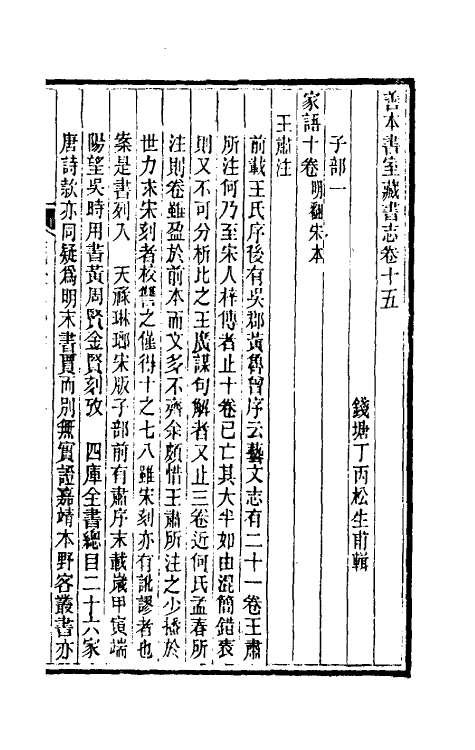 善本書室藏書志卷十五
錢塘丁丙松生甫輯
子部一
家語十卷 明翻宋本
王肅注
前載王氏序後有吳郡黃魯曾序云藝文志有二十一卷王肅
所注何乃至宋人梓傳者止十卷已亡其大半如由混簡錯袠
則又不可分析比之王廣謀句解者又止三卷近何氏孟春所
注則卷雖盈於前本而文多不齊余頗惜王肅所注之少播於
世力求宋刻者校讐之僅得十之七八雖宋刻亦有訛謬者也
案是書刻入　天祿琳瑯宋版子部前有肅序末載歲甲寅端
陽望吳時用書黃周賢金賢刻攷　四庫全書總目二十六家
唐詩款亦同疑爲明末書賈而別無實證嘉靖本野客叢書亦